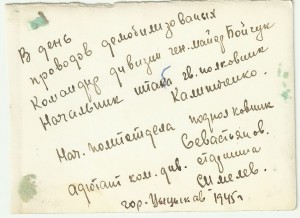 В день
проводов демобилизованых
Командир дивизии ген. майор Бойчук
Начальник штаба гв. полковник
Калиниченко.
Нач. политотдела подполковник
Севастьянов.
адютант ком. див. старшина
Смелев.
гор. Цыцыкав 1945 г